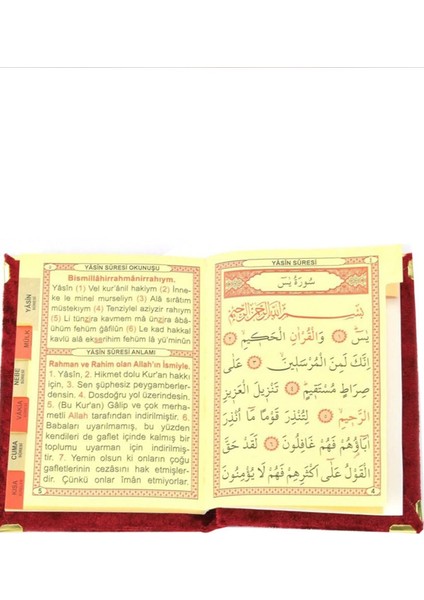 YÂSÎN SÛRESİ
سُورَةُ يٰسٓ
بِسْمِ اللّٰهِ الرَّحْمٰنِ الرَّحِيمِ
يٰسٓ ﴿١﴾ وَالْقُرْاٰنِ الْحَكِيمِ ﴿٢﴾
اِنَّكَ لَمِنَ الْمُرْسَلِينَ ﴿٣﴾ عَلٰى
صِرَاطٍ مُسْتَقِيمٍ ﴿٤﴾ تَنْزِيلَ الْعَزِيزِ
الرَّحِيمِ ﴿٥﴾ لِتُنْذِرَ قَوْمًا مَٓا اُنْذِرَ
اٰبَٓاؤُهُمْ فَهُمْ غَافِلُونَ ﴿٦﴾ لَقَدْ حَقَّ
الْقَوْلُ عَلٰٓى اَكْثَرِهِمْ فَهُمْ لَا يُؤْمِنُونَ
4
YÂSÎN SÛRESİ OKUNUŞU
Bismillâhirrahmânirrahıym.
Yâsîn (1) Vel kur'ânil hakiym (2) İnne-
ke le minel murseliyn (3) Alâ sırâtım
müstekıym (4) Tenziylel aziyzir rahıym
(5) Li tünzira kavmem mâ ünzira âbâ-
ühüm fehüm ğâfilûn (6) Le kad hakkal
kavlü alâ ekserihim fehüm lâ yü'minûn
YÂSÎN SÛRESİ ANLAMI
Rahman ve Rahim olan Allah'ın İsmiyle.
1. Yâsîn, 2. Hikmet dolu Kur'an hakkı
için, 3. Sen şüphesiz peygamberler-
densin. 4. Dosdoğru yol üzerindesin.
5. (Bu Kur'an) Gâlip ve çok merha-
metli Allah tarafından indirilmiştir. 6.
Babaları uyarılmamış, bu yüzden
kendileri de gaflet içinde kalmış bir
toplumu uyarman için indirilmiş-
tir. 7. Yemin olsun ki onların çoğu
gafletlerinin cezasını hak etmişler-
dir. Çünkü onlar îmân etmiyorlar.
5
YÂSÎN
MÜLK
NEBE
VAKIA
CUMA
KISA